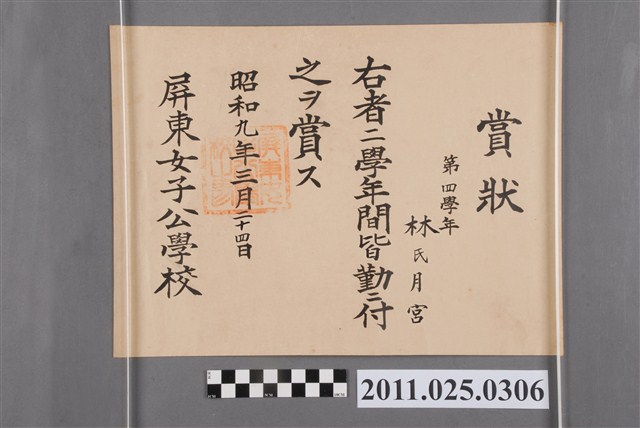 賞狀
第四學年
林氏月宮
右者二學年間皆勤ニ付
之ヲ賞ス
昭和九年三月二十四日
屏東女子公學校
2011.025.0306